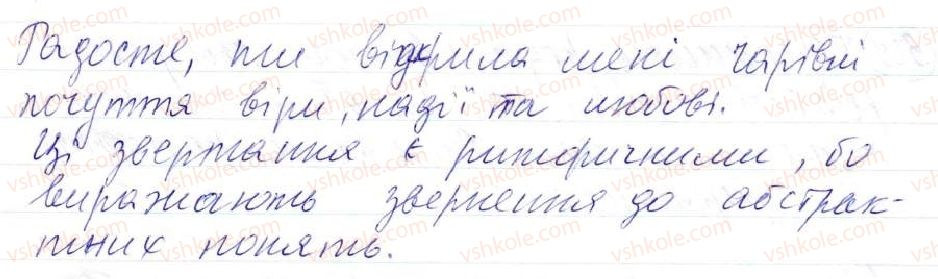 Радосте, ти відкрила мені чарівні
почуття віри, надії та любові.
Ці звертання є риторичними, бо
виражають звернення до абстрак-
тних понять.